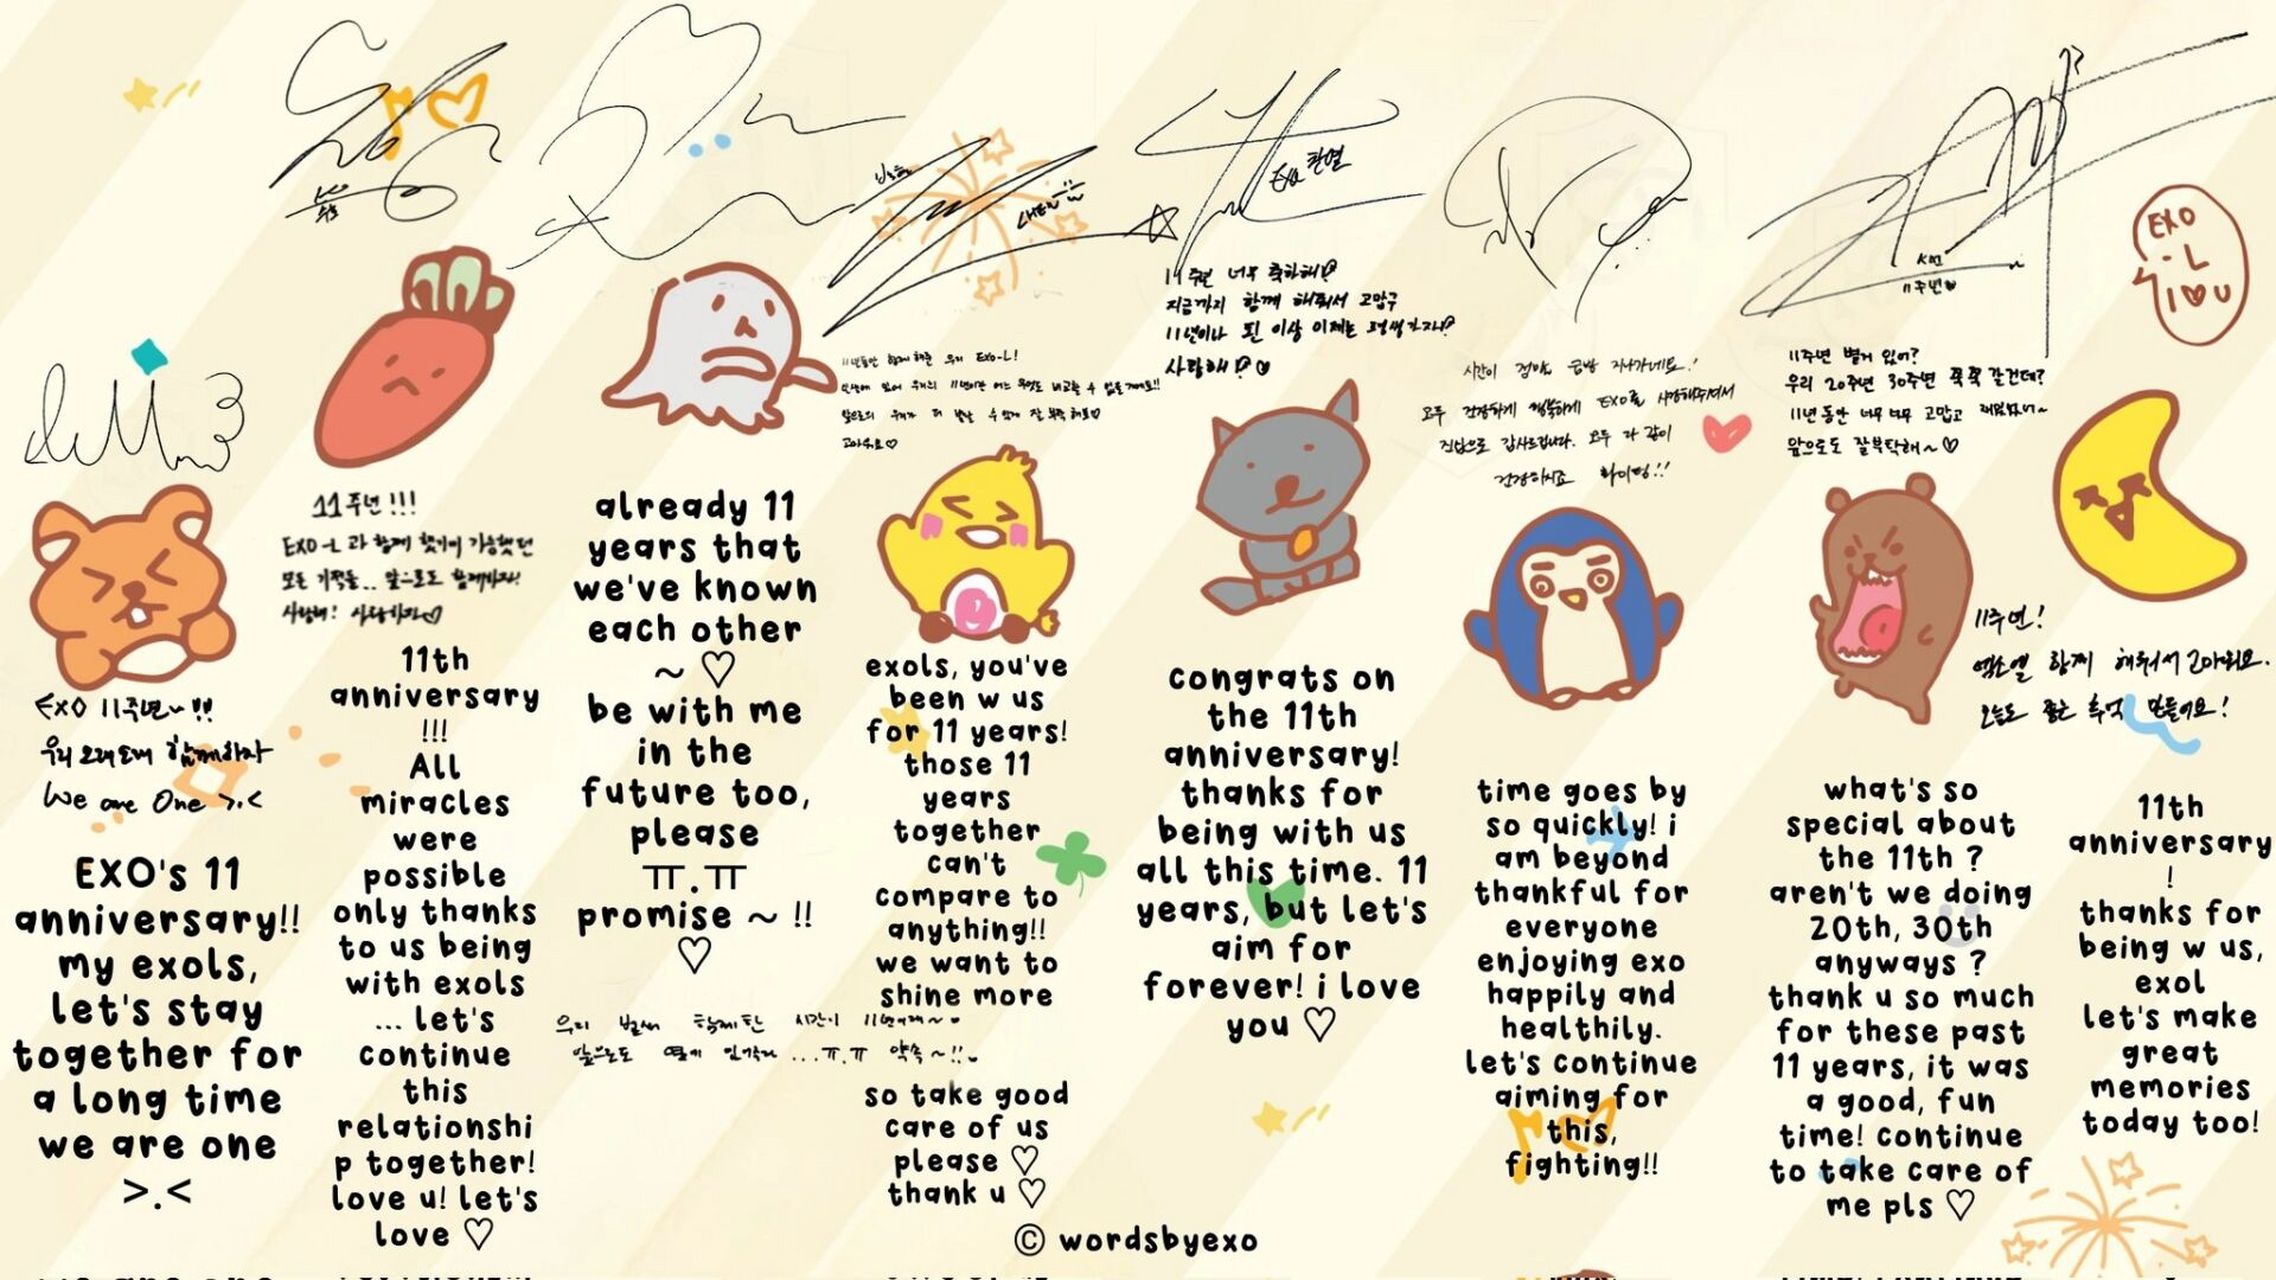 EXO 11주년~!!
우리 오래오래 함께하자
We are One >.<
EXO's 11
anniversary!!
my exols,
let's stay
together for
a long time
we are one
>.<
11주년!!!
EXO-L과 함께 했기에 가능했던
모든 기적들.. 앞으로도 함께하자!
사랑해! 사랑하자♡
11th
anniversary
!!!
All
miracles
were
possible
only thanks
to us being
with exols
... let's
continue
this
relationshi
p together!
love u! let's
love ♡
already 11
years that
we've known
each other
~ ♡
be with me
in the
future too,
please
ㅠ.ㅠ
promise ~ !!
♡
우리 벌써 함께한 시간이 11년이래~
앞으로도 함께 ...ㅠ.ㅠ 약속~!!
CHEN
11년동안 함께 해준 우리 EXO-L!
앞으로의 우리가 더 빛날 수 있게 잘 부탁해요♡
고마워요♡
exols, you've
been w us
for 11 years!
those 11
years
together
can't
compare to
anything!!
we want to
shine more
so take good
care of us
please ♡
thank u ♡
EXO 찬열
11주년 너무 축하해!
지금까지 함께 해줘서 고맙구
11년이나 된 이상 이제는 평생가자!
사랑해! ♡
congrats on
the 11th
anniversary!
thanks for
being with us
all this time. 11
years, but let's
aim for
forever! i love
you ♡
시간이 정말 금방 지나가네요!
모두 건강하게 행복하게 EXO를 사랑해주셔서
진심으로 감사드립니다. 모두 다 같이
건강하시죠 화이팅!!
time goes by
so quickly! i
am beyond
thankful for
everyone
enjoying exo
happily and
healthily.
let's continue
aiming for
this,
fighting!!
11주년♥
11주년 별거 있어?
우리 20주년 30주년 쭉쭉 갈건데?
11년동안 너무너무 고맙고 재밌었어~
앞으로도 잘부탁해~♡
what's so
special about
the 11th ?
aren't we doing
20th, 30th
anyways ?
thank u so much
for these past
11 years, it was
a good, fun
time! continue
to take care of
me pls ♡
EXO
-L
I♥U
11주년!
엑소엘 함께 해줘서 고마워요.
오늘도 좋은 추억 만들어요!
11th
anniversary
!
thanks for
being w us,
exol
let's make
great
memories
today too!
© wordsbyexo